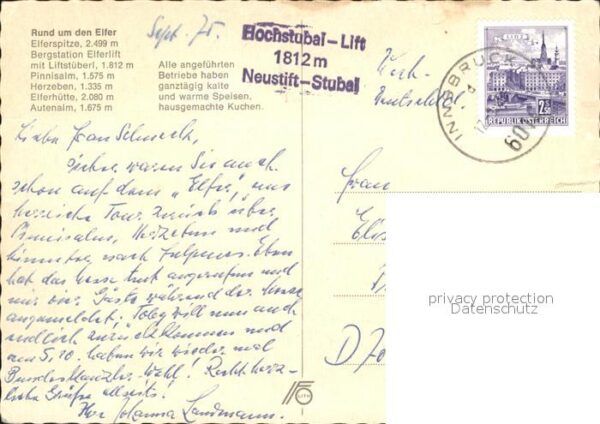 Rund um den Elfer
Elferspitze, 2.499 m
Bergstation Elferlift
mit Liftstüberl, 1.812 m
Pinnisalm, 1.575 m
Herzeben, 1.335 m
Elferhütte, 2.080 m
Autenalm, 1.675 m
Alle angeführten
Betriebe haben
ganztägig kalte
und warme Speisen.
hausgemachte Kuchen.
Sept. 75
Hochstubai-Lift
1812 m
Neustift-Stubai
INNSBRUCK
6010
LINZ
2.50
REPUBLIK ÖSTERREICH
Liebe Frau
waren Sie auch
schon auf dem "Elfer",
Tour zurück über
Pinnisalm, Herzeben und
nach Fulpmes. Eben
hat das angerufen und
Gäste während der Messe
angemeldet. will nun auch
endlich zurückkommen und
am 5.10. haben wir wieder mal
Bundeskanzler-Wahl! Recht herz-
liche Grüße allseits!
Ihre Johanna Landmann.
Frau
D
privacy protection
Datenschutz